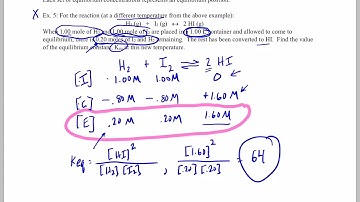 Each set of equilibrium concentrations represents an equilibrium position.
X Ex. 5: For the reaction (at a different temperature from the above example):
H₂ (g) + I₂ (g) ↔ 2 HI (g)
When 1.00 mole of H₂ and 1.00 mole of I₂ are placed in a 1.00 L container and allowed to come to
equilibrium, there is 0.20 moles of I₂ and H₂ remaining. The rest has been converted to HI. Find the value
of the equilibrium constant, Keq, at this new temperature.
H₂ + I₂ ⇌ 2 HI
[I] 1.00M 1.00M 0
[C] -.80M -.80M +1.60M
[E] .20M .20M 1.60M
Keq = [HI]² / [H₂][I₂] , [1.60]² / [.20][.20] = 64